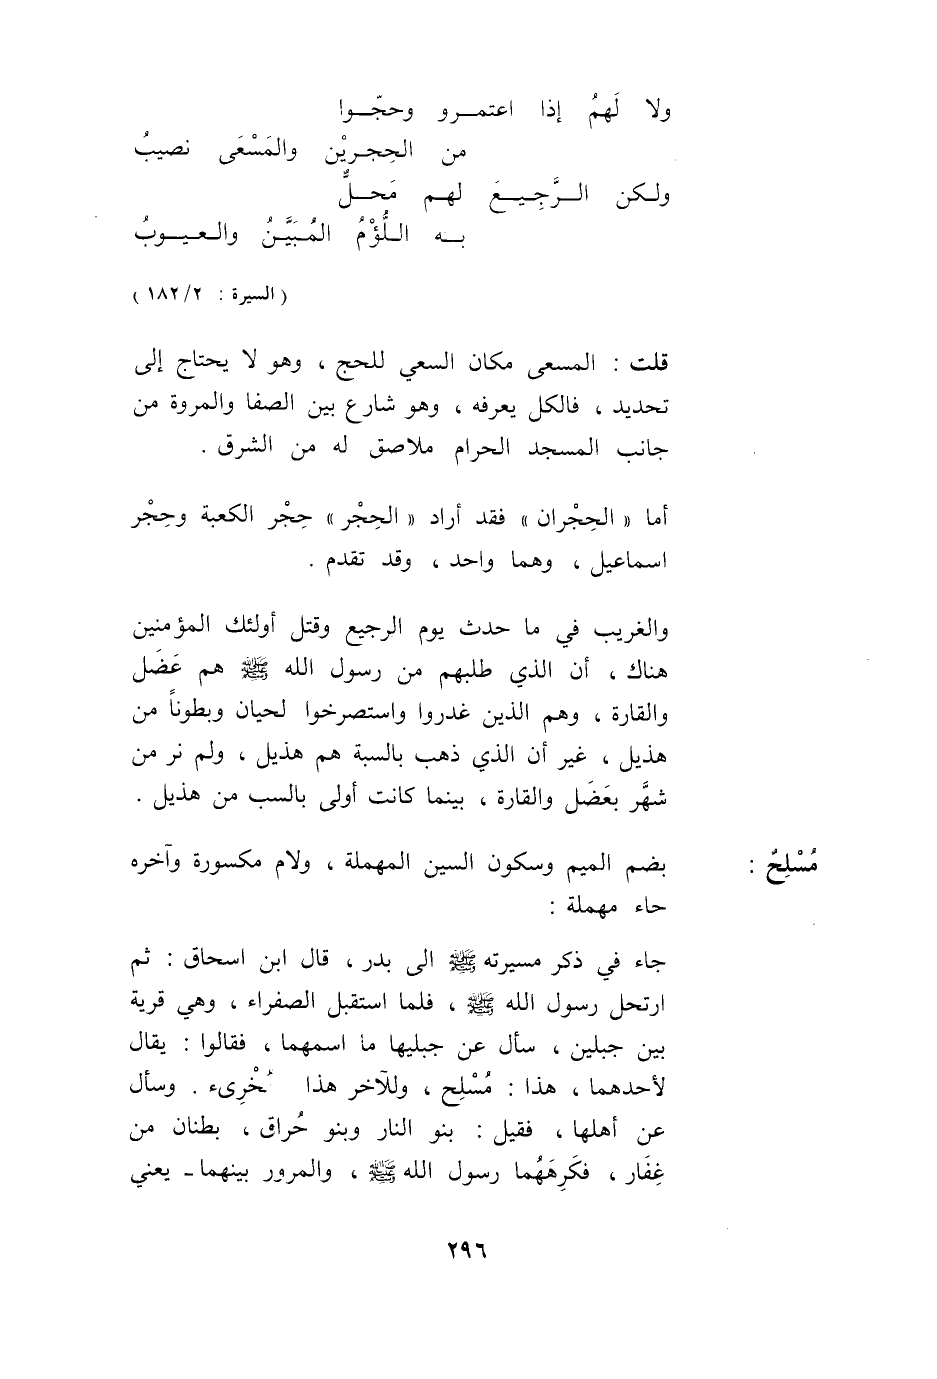 ولا لَهمُ إذا اعتمـــرو وحجّـــوا
من الحِجـريْن والمَسْعَى نصيبُ
ولـكن الـــرَّجِيـــعَ لهـم مَحـــلٌّ
بـــه اللُّؤْمُ المُبَيَّـنُ والعـيـــوبُ
( السيرة : ١٨٢/٢ )
قلت : المسعى مكان السعي للحج ، وهو لا يحتاج إلى
تحديد ، فالكل يعرفه ، وهو شارع بين الصفا والمروة من
جانب المسجد الحرام ملاصق له من الشرق .
أما « الحِجْران » فقد أراد « الحِجْر » حِجْر الكعبة وحِجْر
اسماعيل ، وهما واحد ، وقد تقدم .
والغريب في ما حدث يوم الرجيع وقتل أولئك المؤمنين
هناك ، أن الذي طلبهم من رسول الله ﷺ هم عَضَل
والقارة ، وهم الذين غدروا واستصرخوا لحيان وبطوناً من
هذيل ، غير أن الذي ذهب بالسبة هم هذيل ، ولم نر من
شهَّر بعَضَل والقارة ، بينما كانت أولى بالسب من هذيل .
مُسْلِحٌ : بضم الميم وسكون السين المهملة ، ولام مكسورة وآخره
حاء مهملة :
جاء في ذكر مسيرته ﷺ الى بدر ، قال ابن اسحاق : ثم
ارتحل رسول الله ﷺ ، فلما استقبل الصفراء ، وهي قرية
بين جبلين ، سأل عن جبليها ما اسمهما ، فقالوا : يقال
لأحدهما ، هذا : مُسْلِح ، وللآخر هذا . وسأل
عن أهلها ، فقيل : بنو النار وبنو حُراق ، بطنان من
غِفَار ، فكَرِهَهُما رسول الله ﷺ ، والمرور بينهما - يعني
٢٩٦